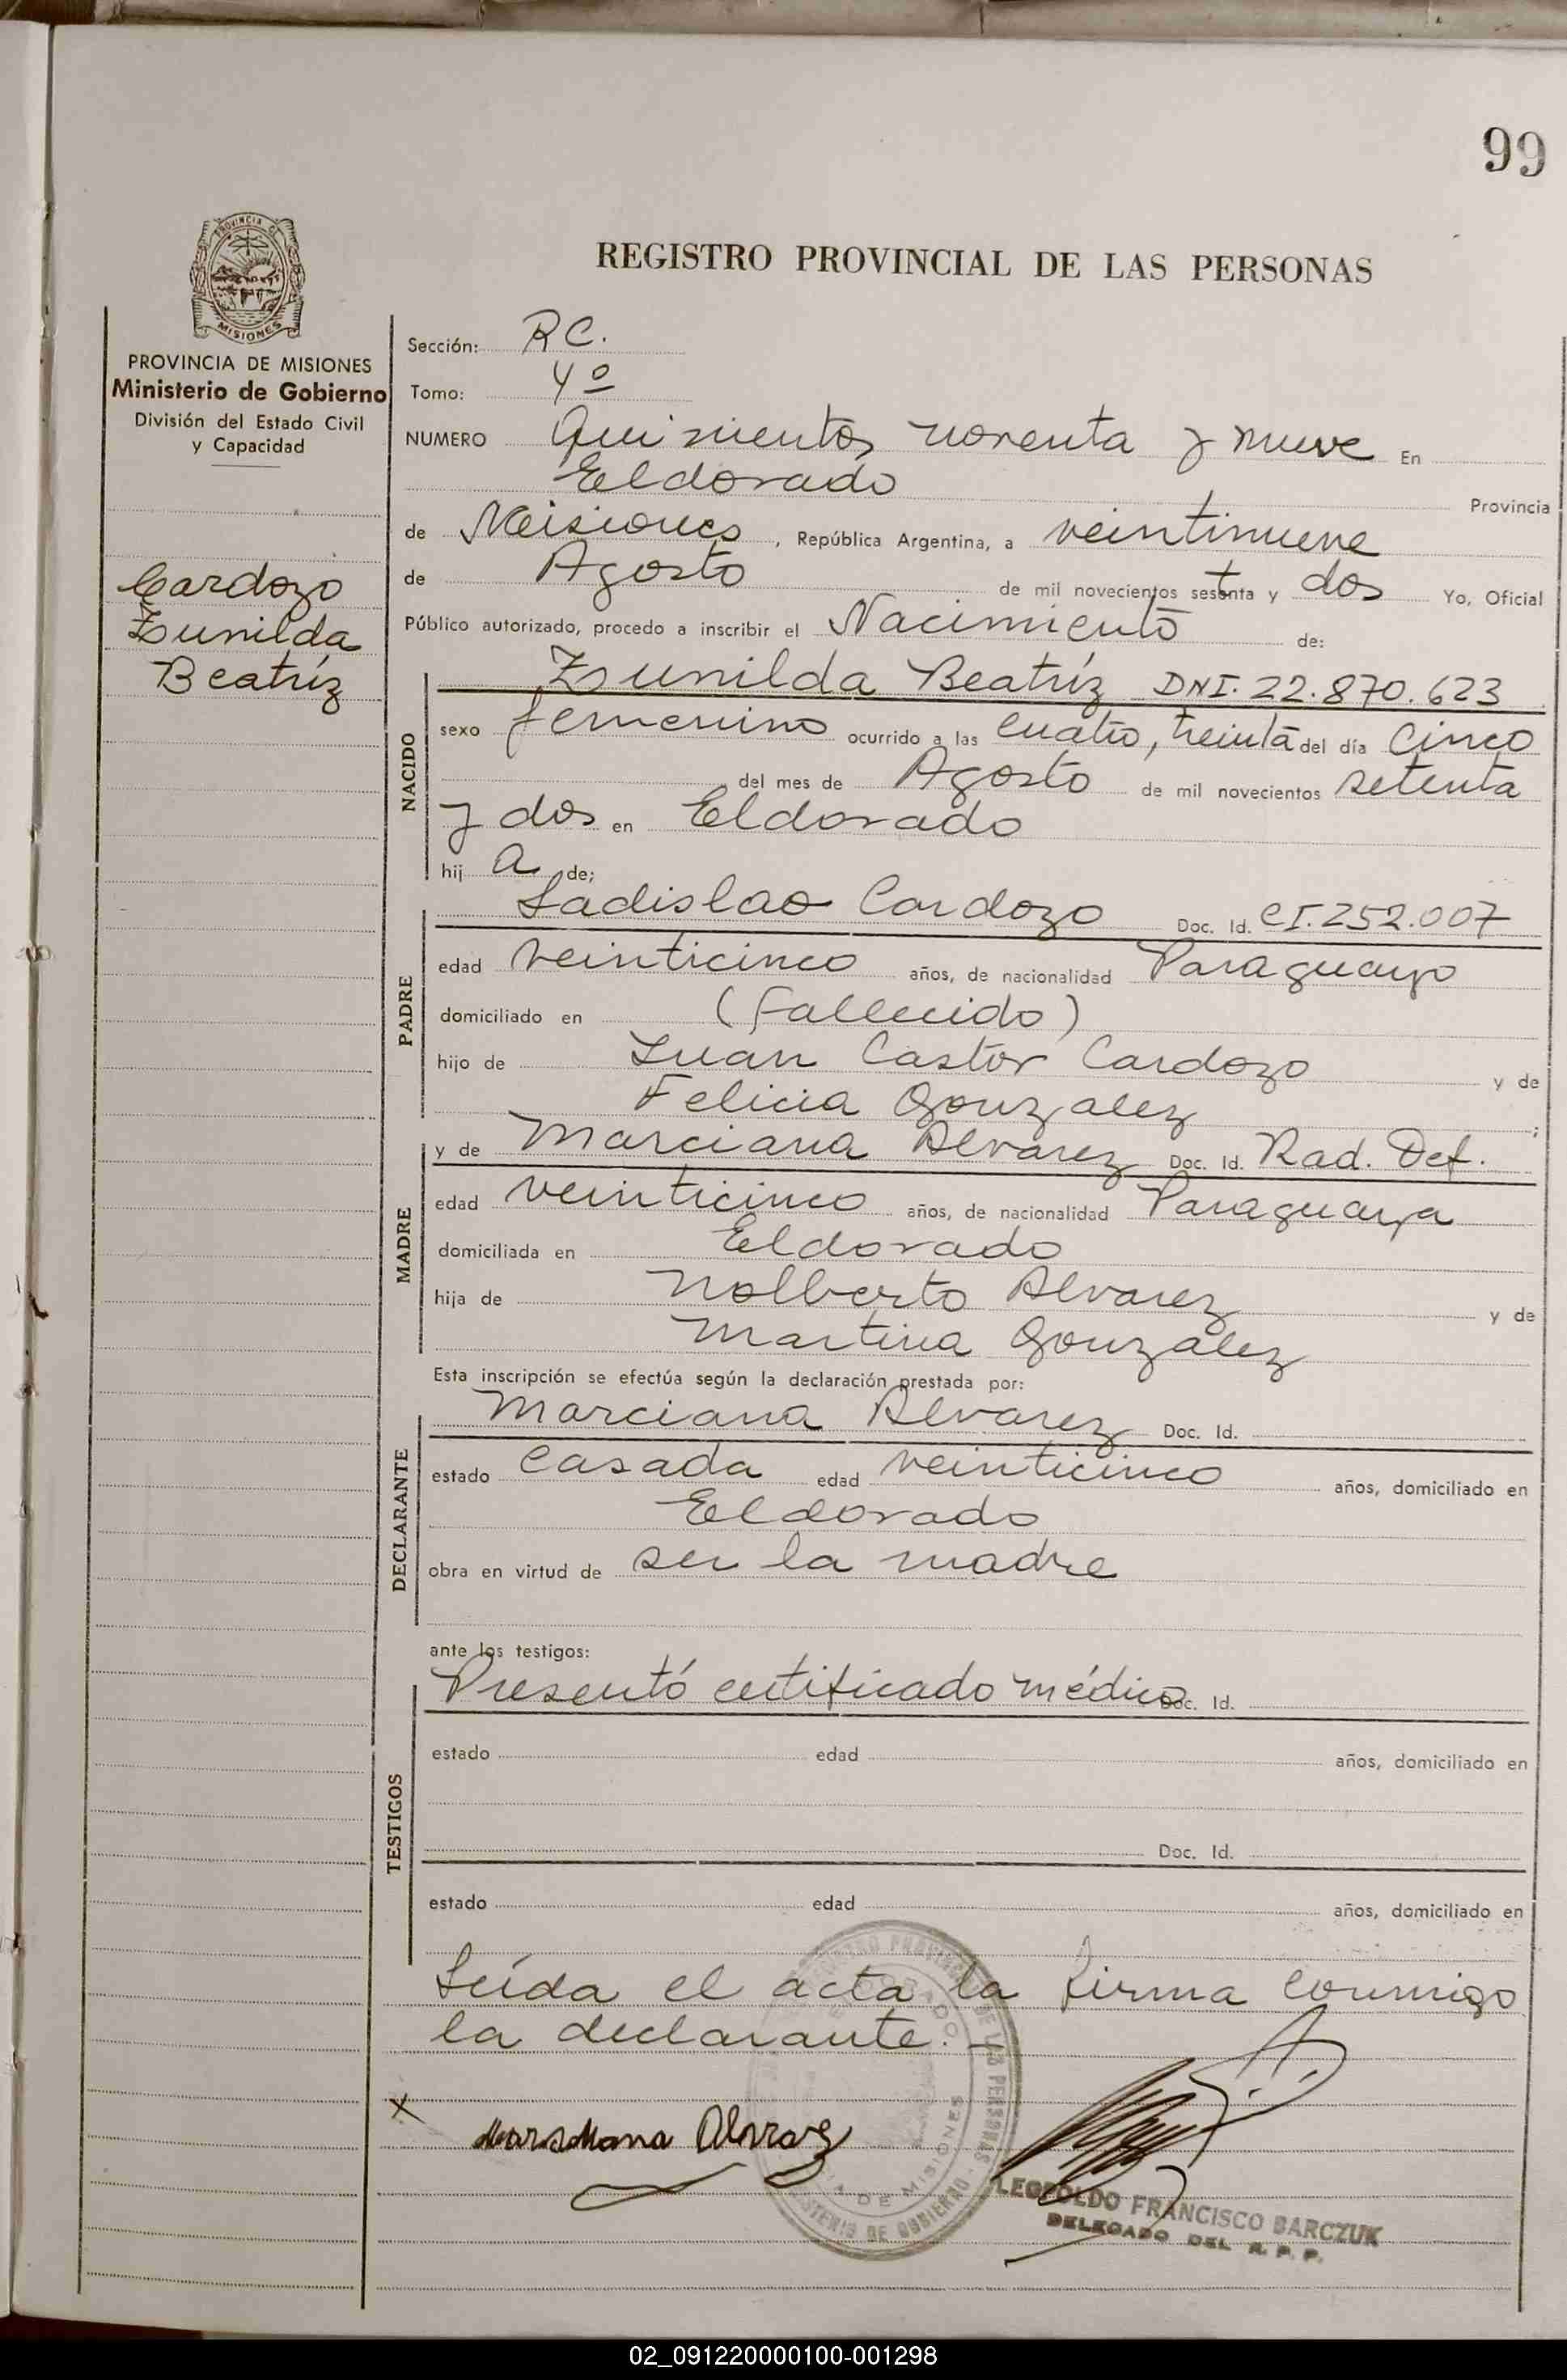 99
PROVINCIA DE
MISIONES
REGISTRO PROVINCIAL DE LAS PERSONAS
PROVINCIA DE MISIONES
Ministerio de Gobierno
División del Estado Civil
y Capacidad
Cardozo
Zunilda
Beatríz
Sección: R C.
Tomo: 4º
NUMERO Quinientos noventa y nueve En
Eldorado Provincia
de Misiones, República Argentina, a veintinueve
de Agosto de mil novecientos setenta y dos Yo, Oficial
Público autorizado, procedo a inscribir el Nacimiento de:
NACIDO
Zunilda Beatríz DNI. 22.870.623
sexo femenino ocurrido a las cuatro, treinta del día Cinco
del mes de Agosto de mil novecientos setenta
y dos en Eldorado
hij a de;
PADRE
Ladislao Cardozo Doc. Id. CI. 252.007
edad veinticinco años, de nacionalidad Paraguayo
domiciliado en (Fallecido)
hijo de Juan Castor Cardozo y de
Felicia Gonzalez ;
MADRE
y de Marciana Alvarez Doc. Id. Rad. Def.
edad veinticinco años, de nacionalidad Paraguaya
domiciliada en Eldorado
hija de Nolberto Alvarez y de
Martina Gonzalez
Esta inscripción se efectúa según la declaración prestada por:
DECLARANTE
Marciana Alvarez Doc. Id.
estado Casada edad veinticinco años, domiciliado en
Eldorado
obra en virtud de ser la madre
ante los testigos:
TESTIGOS
Presentó certificado médico Doc. Id.
estado edad años, domiciliado en
Doc. Id.
estado edad años, domiciliado en
Leída el acta la firma conmigo
la declarante.-
x
LEOPOLDO FRANCISCO BARCZUK
DELEGADO DEL R. P. P.
02_091220000100-001298